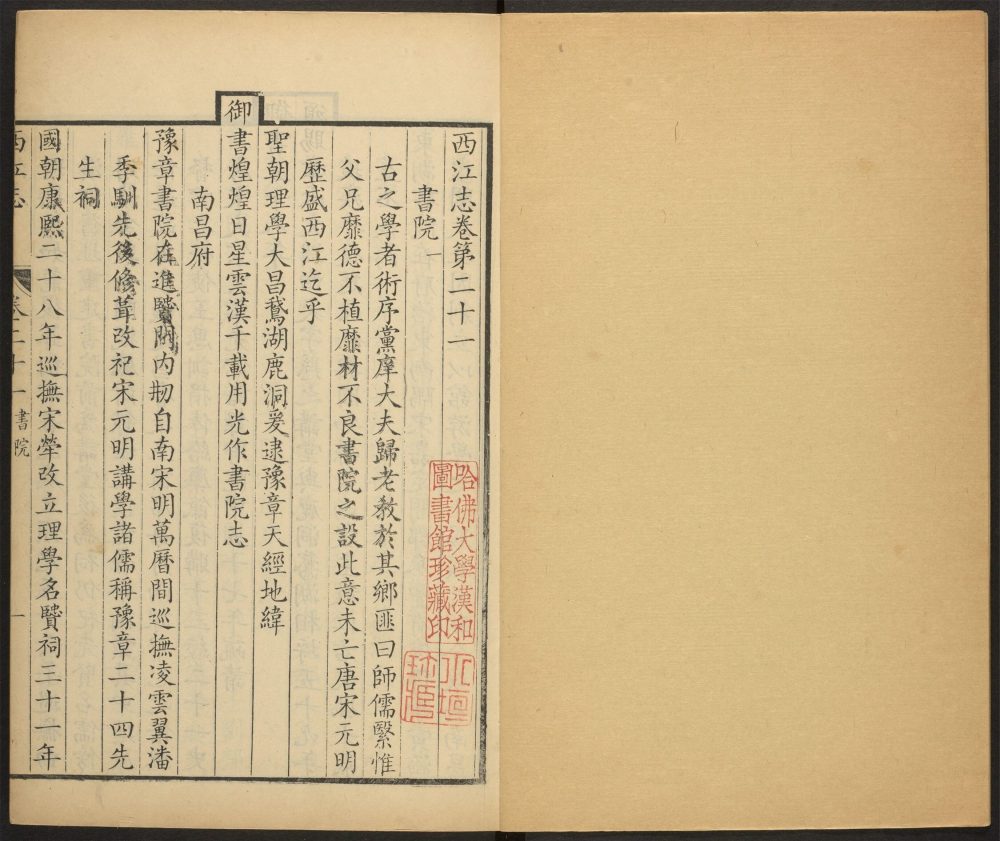 西江志卷第二十一
書院一
古之學者術序黨庠大夫歸老教於其鄉匪曰師儒繄惟
父兄靡德不植靡材不良書院之設此意未亡唐宋元明
歷盛西江迄乎
聖朝理學大昌鵞湖鹿洞爰逮豫章天經地緯
御書煌煌日星雲漢千載用光作書院志
南昌府
豫章書院在進賢門内剏自南宋明萬曆間巡撫凌雲翼潘
季馴先後修葺改祀宋元明講學諸儒稱豫章二十四先
生祠
國朝康熙二十八年巡撫宋犖改立理學名賢祠三十一年
西江志
卷二十一
書院
一
哈佛大學漢和
圖書館珍藏印